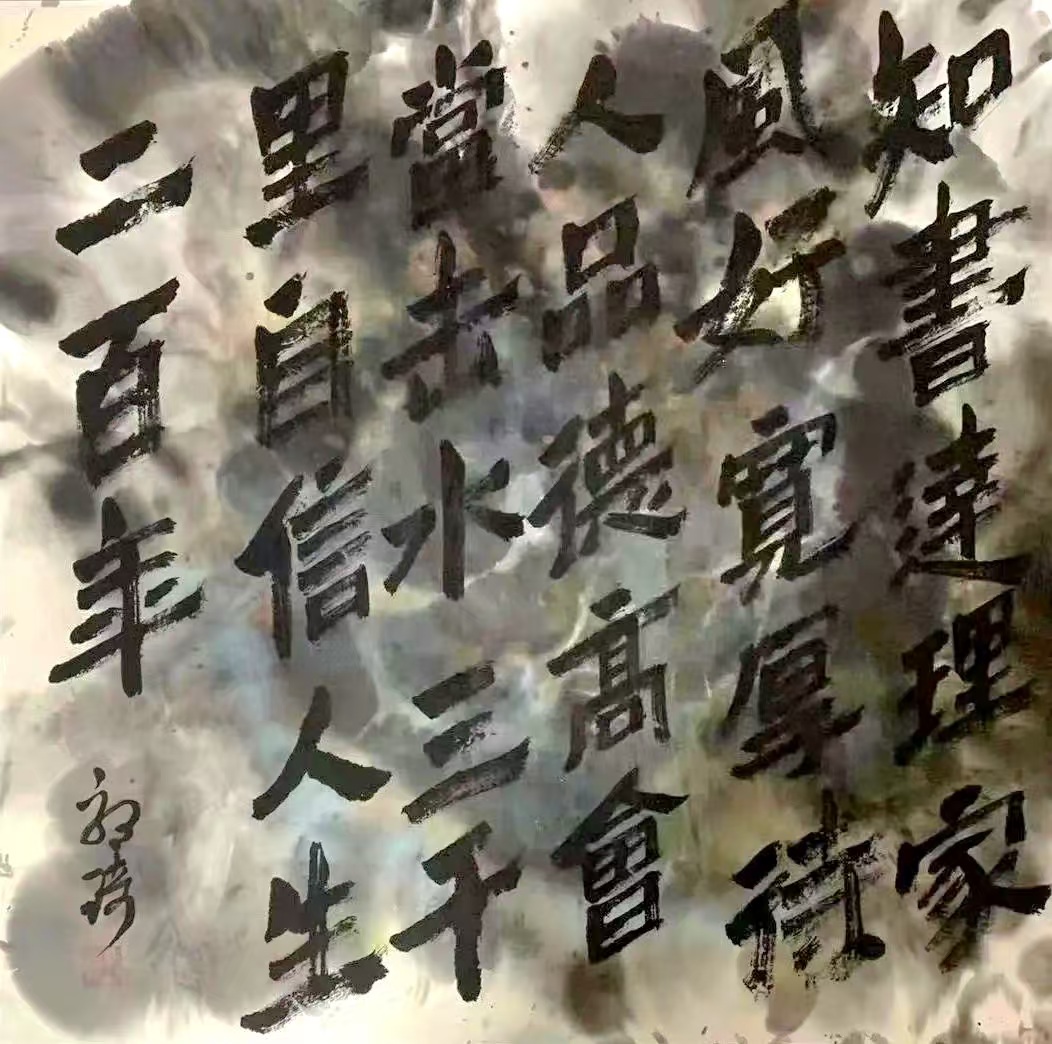 知書達理家
風好寬厚待
人品德髙會
當击水三千
里自信人生
二百年